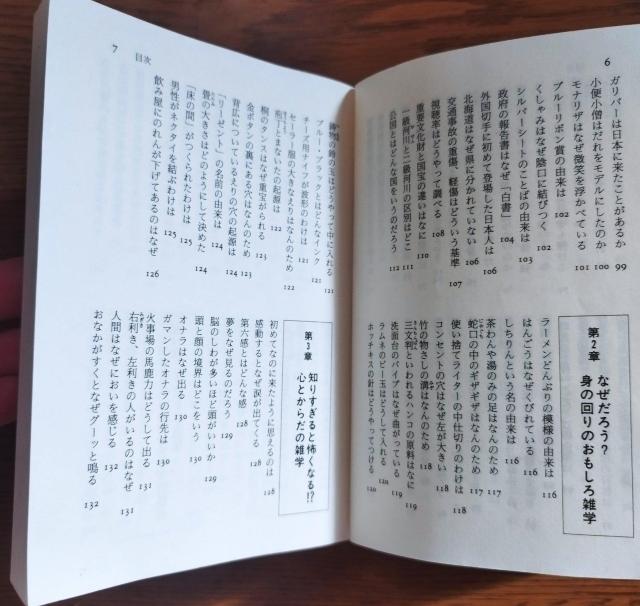 6
ガリバーは日本に来たことがあるか 99
小便小僧はだれをモデルにしたのか 100
モナリザはなぜ微笑を浮かべている 101
ブルーリボン賞の由来は 102
くしゃみはなぜ陰口に結びつく 102
シルバーシートのことばの由来は 103
政府の報告書はなぜ「白書」 104
外国切手に初めて登場した日本人は 106
北海道はなぜ県に分かれていない 106
交通事故の重傷、軽傷はどういう基準 107
視聴率はどうやって調べる 108
重要文化財と国宝の違いはなに 110
一級河川と二級河川の区別はどこ 111
公国とはどんな国をいうのだろう 112
第2章 なぜだろう?
身の回りのおもしろ雑学
ラーメンどんぶりの模様の由来は 116
はんごうはなぜくびれている 116
しちりんという名の由来は 116
茶わんや湯のみの足はなんのため 117
蛇口の中のギザギザはなんのため 117
使い捨てライターの中仕切りのわけは 118
コンセントの穴はなぜ左が大きい 118
竹の物さしの溝はなんのため 118
三文判といわれるハンコの原料はなに 119
洗面台のパイプはなぜ曲がっている 119
ラムネのビー玉はどうして入れる 120
ホッチキスの針はどうやってつける 120
7 目次
の鈴の玉はどうやって中に入れる 121
ブルー・ブラックとはどんなインク 121
チーズ用ナイフが波形のわけは 121
セーラー服の大きなえりはなんのため 122
瓶をとまないたの起源は 122
桐のタンスはなぜ重宝がられる 123
金ボタンの裏にある穴はなんのため 123
背広についているえりの穴の起源は 124
「リーゼント」の名前の由来は 124
畳の大きさはどのようにして決めた 124
「床の間」がつくられたわけは 125
男性がネクタイを結ぶわけは 125
飲み屋にのれんが下げてあるのはなぜ 126
第3章 知りすぎると怖くなる!?
心とからだの雑学
初めてなのに来たように思えるのは 128
感動するとなぜ涙が出てくる 128
第六感とはどんな感 128
夢をなぜ見るのだろう 129
脳のしわが多いほど頭がいいか 129
頭と顔の境界はどこをいう 130
オナラはなぜ出る 130
ガマンしたオナラの行先は 130
火事場の馬鹿力はどうして出る 131
右利き、左利きの人がいるのはなぜ 131
人間はなぜにおいを感じる 132
おなかがすくとなぜグーッと鳴る 132